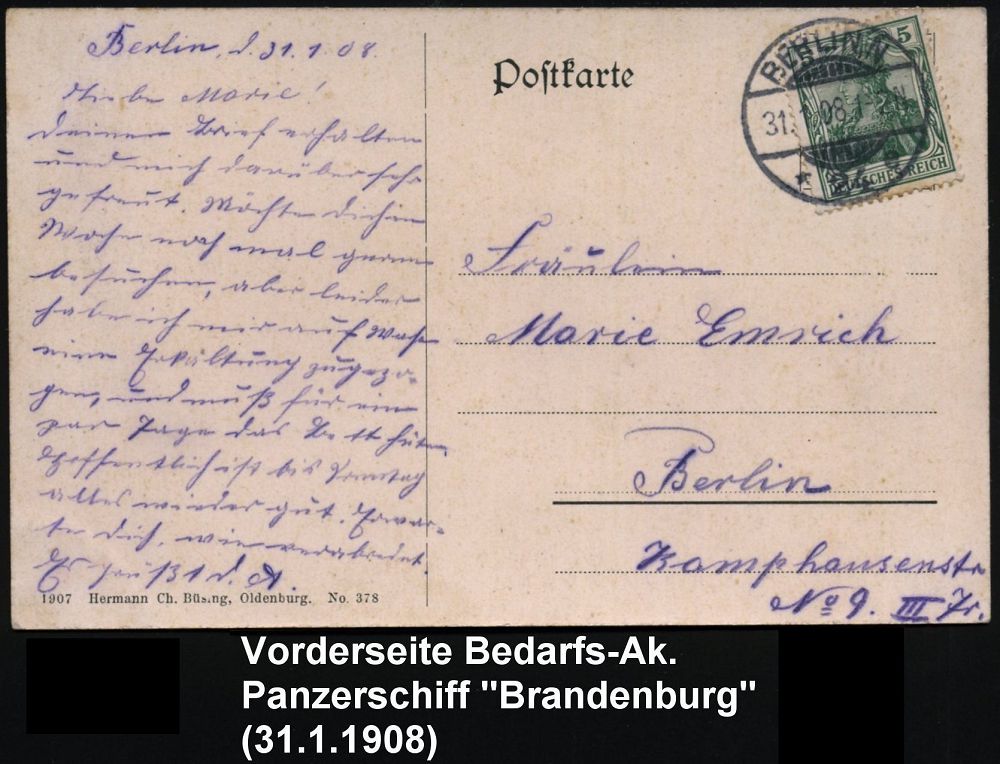 Berlin, d. 31.1.08.
Liebe Marie!
Deinen Brief erhalten
und mich darüber sehr
gefreut. Möchte dich in
Woche noch mal gern
besuchen, aber leider
habe ich mir auf
eine Erkältung zugezo-
gen, und muß für ein
par Tage das Bett hüten
Hoffentlich ist bis Sonntag
alles wieder gut. Erwar-
te dich, wie verabredet.
Es grüßt d. A.
1907 Hermann Ch. Büsing, Oldenburg. No. 378
Postkarte
BERLIN N
31. 08.1
DEUTSCHES REICH
5
Fräulein
Marie Emrich
Berlin
Kamphausenstr
No 9. III Tr.
Vorderseite Bedarfs-Ak.
Panzerschiff "Brandenburg"
(31.1.1908)